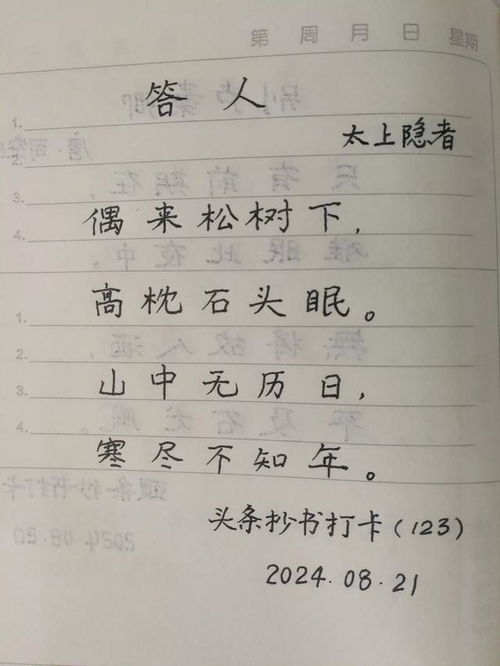 第 周 月 日 星期
答人
1.
太上隐者
2.
3.
偶来松树下，
4.
高枕石头眠。
1.
2.
山中无历日，
3.
4.
寒尽不知年。
头条抄书打卡（123）
2024.08.21